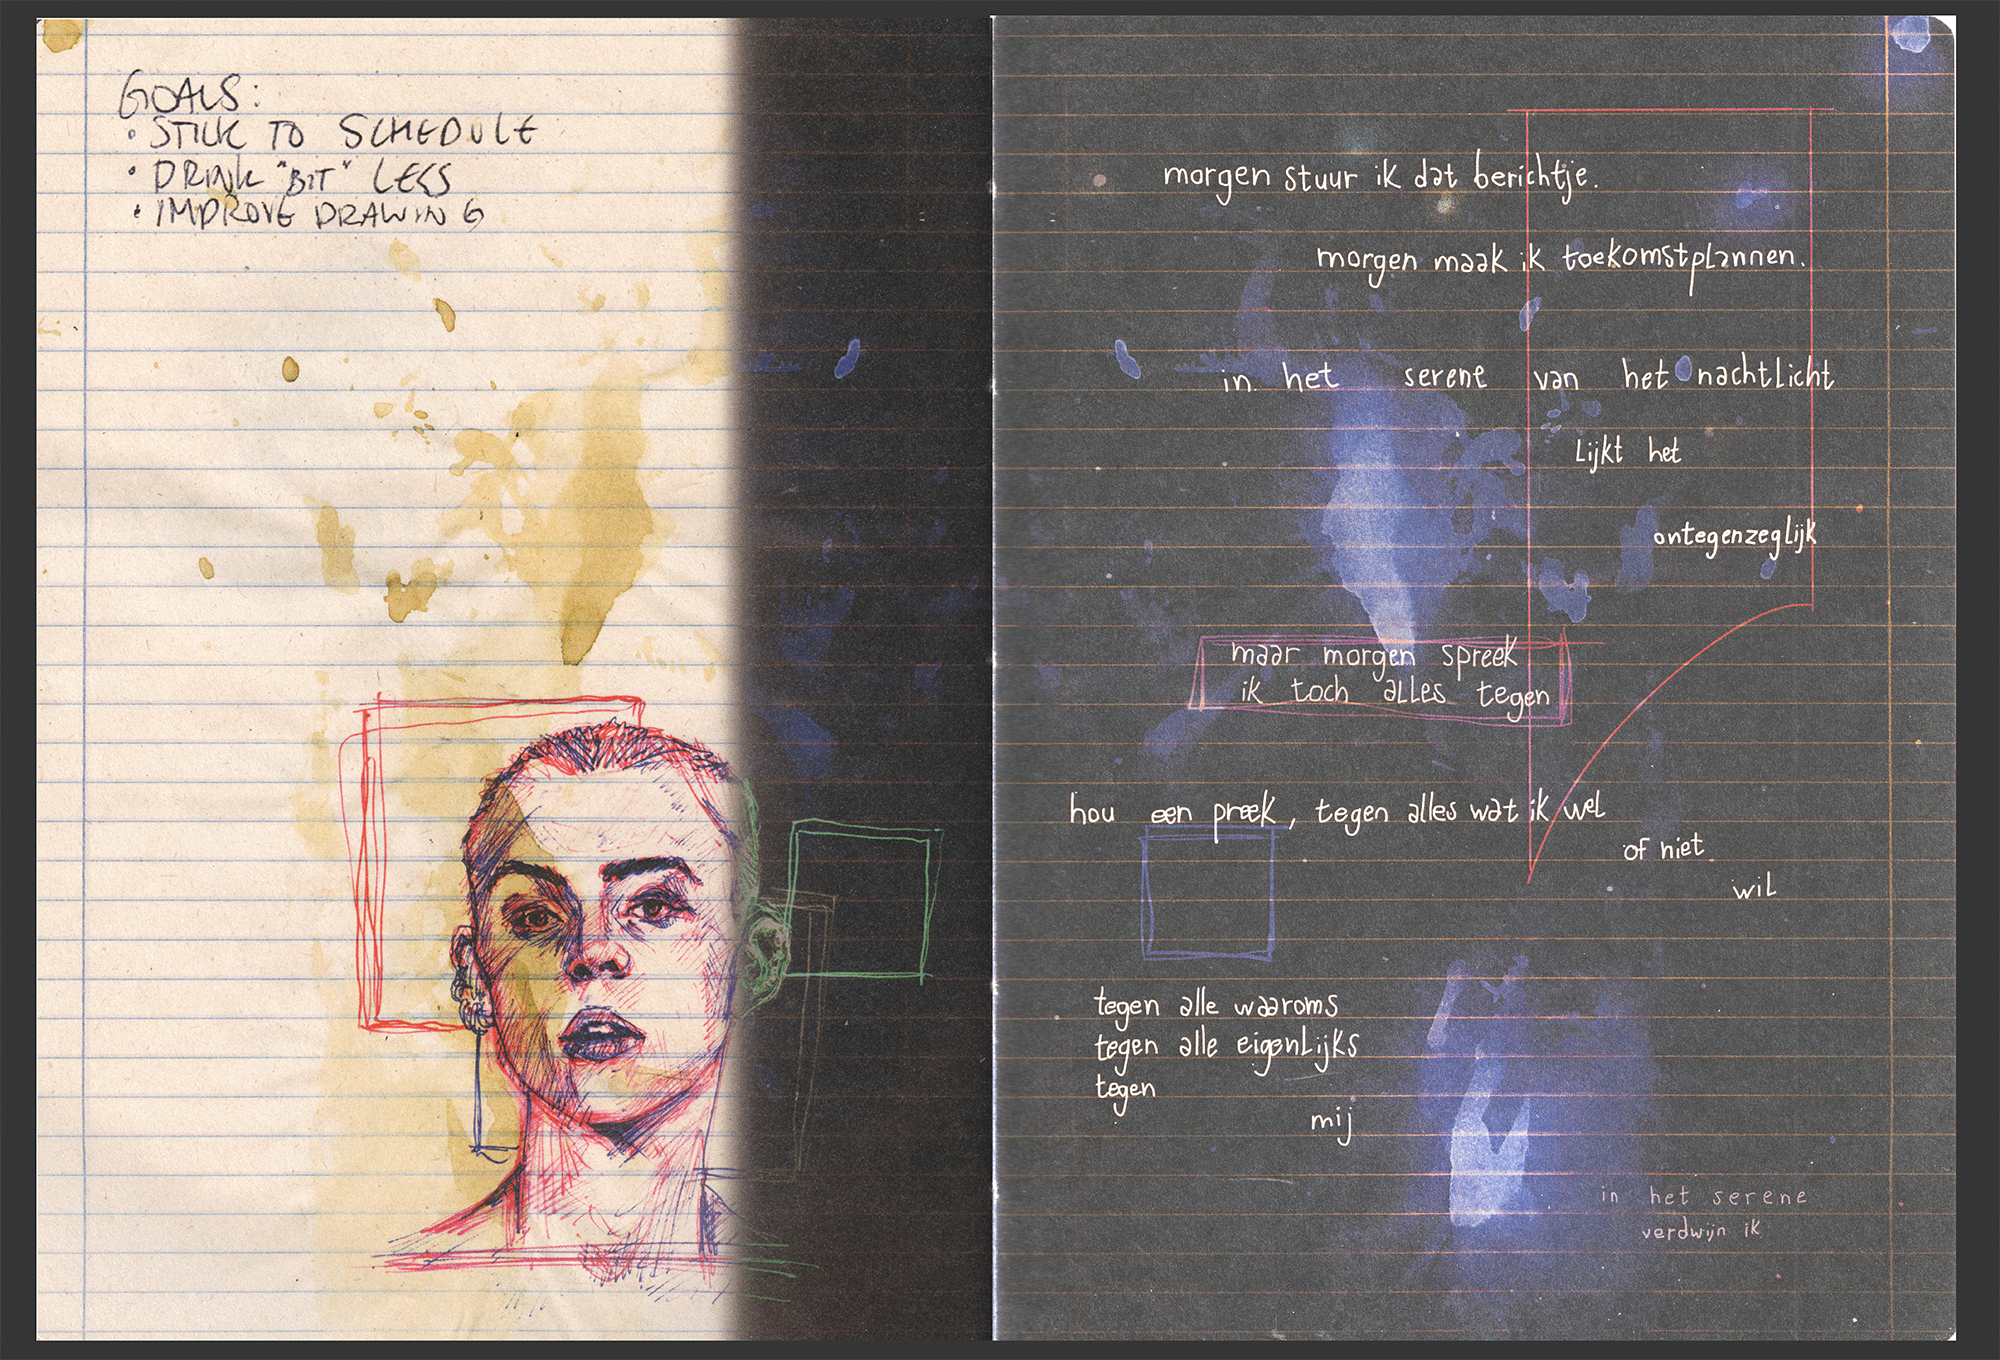 GOALS:
• STICK TO SCHEDULE
• DRINK "BIT" LESS
• IMPROVE DRAWING
morgen stuur ik dat berichtje.
morgen maak ik toekomstplannen.
in het serene van het nachtlicht
lijkt het
ontegenzeglijk
maar morgen spreek
ik toch alles tegen
hou een preek, tegen alles wat ik wel
of niet
wil
tegen alle waaroms
tegen alle eigenlijks
tegen
mij
in het serene
verdwijn ik